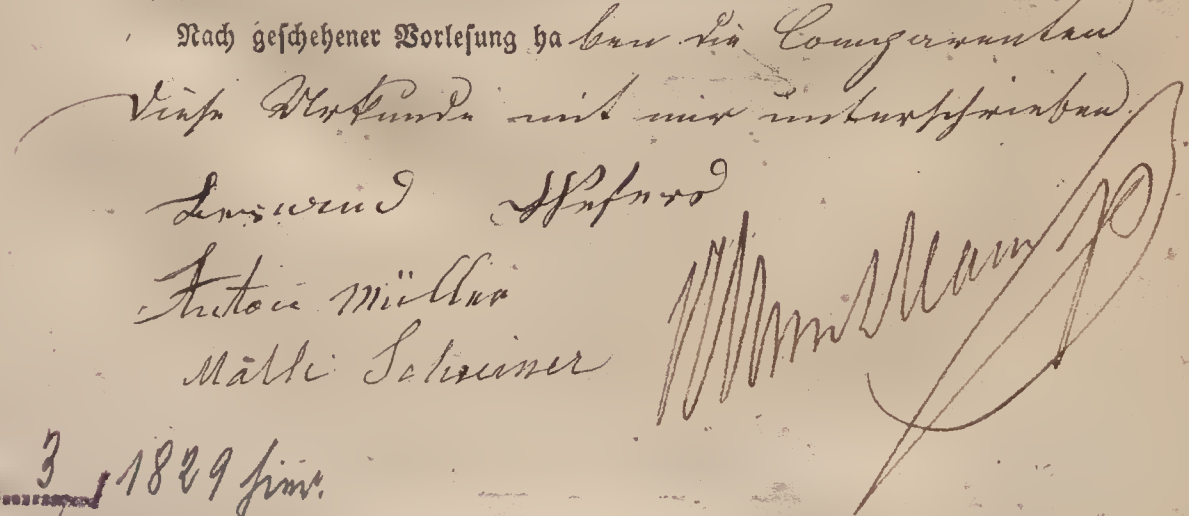 Nach geschehener Vorlesung haben die Comparenten
diese Urkunde mit mir unterschrieben.
Anton Müller
Math Schreiner
3 1829 hier.